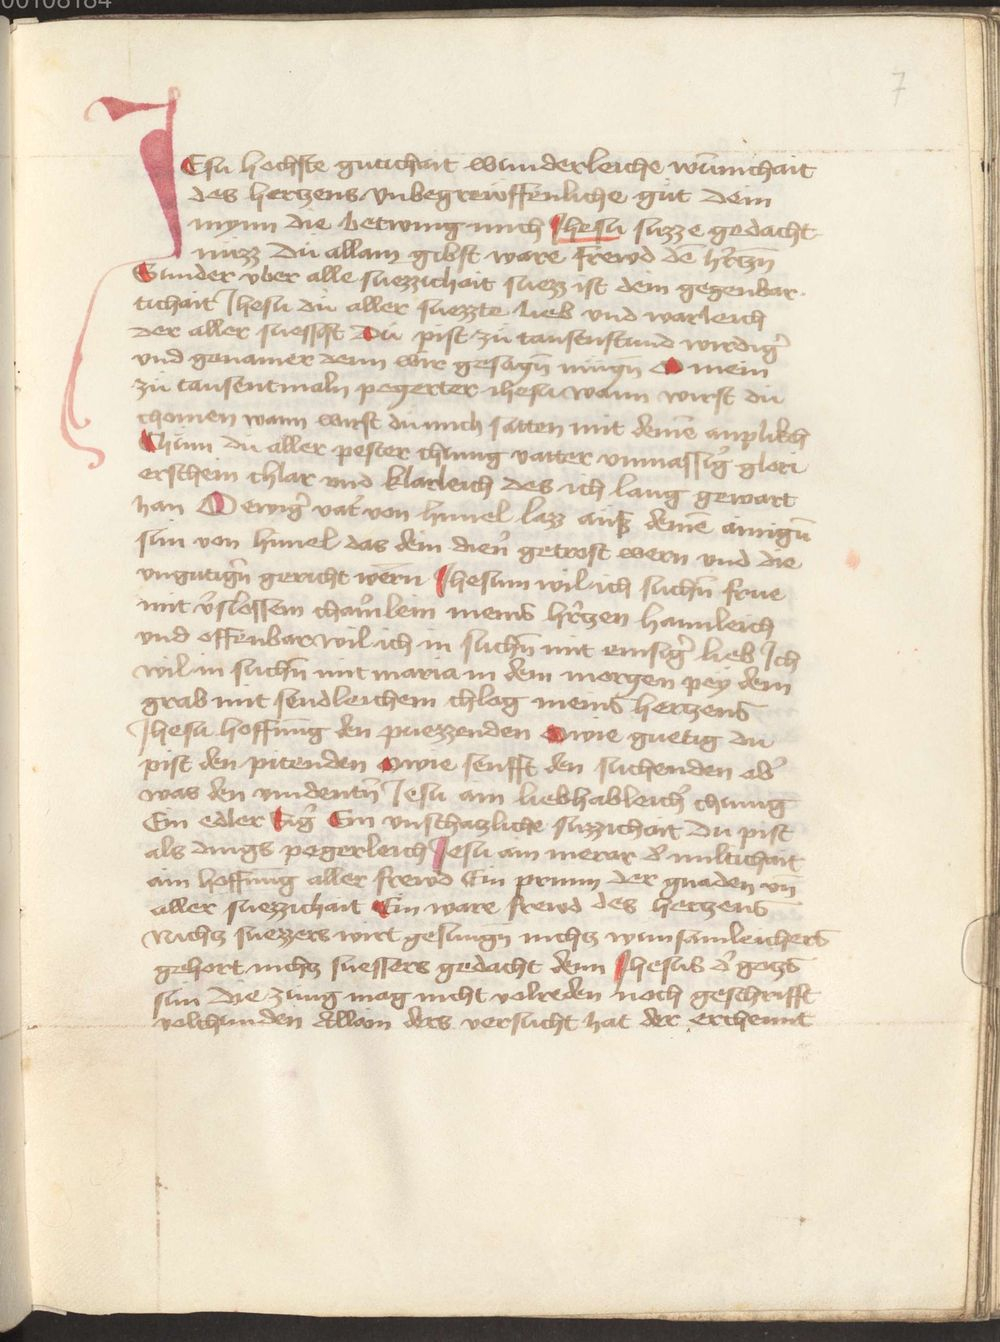 00108184
7
JEsu hochste gutichait wunderleiche wũnichait
des hertzens vnbegreiffenliche güt dein
mynn die betwing mich Jhesu suzze gedacht
nüzz Dü allain gibst ware frewd dē hr̄tzn̄
Sunder vber alle suezzichait suezz ist dein gegenbar
tichait Jhesu du aller suezzte lieb vnd warleich
der aller suessist Dü pist zü tausenstund wirdig̉
vnd genamer denn wir gesagn̄ mügn̄ O mein
zü tausentmaln pegerter ihesu wann wirst du
chomen wann wirst du mich satten mit deinē anplikch
Chum du aller pester chunig vatter vnmassig̉ glori
erschein chlar vnd klarleich des ich lang gewart
han O ewig̉ vat̉ von himel laz auß deinē ainigñ
sün von himel das dein dien̉ getrost wern vnd die
vngutign̄ gericht wern̄ Jhesum wil ich suchn̄ frue
mit v̉slossem cham̉lein meins hr̄tzen haimleich
vnd offenbar wil ich in suchn̄ mit einsig̉ lieb Ich
wil in suchn̄ mit maria in dem morgen pey dem
grab mit sendleichem chlag meins hertzens
Jhesu hoffnung den puezzenden O wie guetig du
pist den pitenden O wie senfft den suchenden ab̉
was den vindentn̄ Jesu ain liebhableich̉ chunig
Ein edler sig̉ Ein vnschatzliche suzzichait Du pist
als dings pegerleich Jesu ain merar d̉ miltichait
ain hoffnung aller frewd Ein prunn der gnaden vn̄
aller suezzichait Ein ware frewd des hertzens
Nichtz suezzers wirt gesungn̄ nichtz wunsamleichers
gehort nichtz suessers gedacht denn Jhesus d̉ gotzs
sun Die zung mag nicht volreden noch geschrifft
volchunden Allain ders versucht hat der erchennt